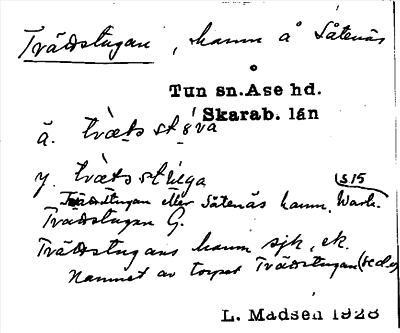 Trädstugan, hamn å Såtenäs
Tun sn. Åse hd.
Skarab. län
ä. træts støva
y. træts stuga
Trädstugan eller Såtenäs hamn, S 15
Trädstugan G.
Trädstugans hamn sjk, ek.
Namnet av torpet Trädstugan
L. Madsen 1928